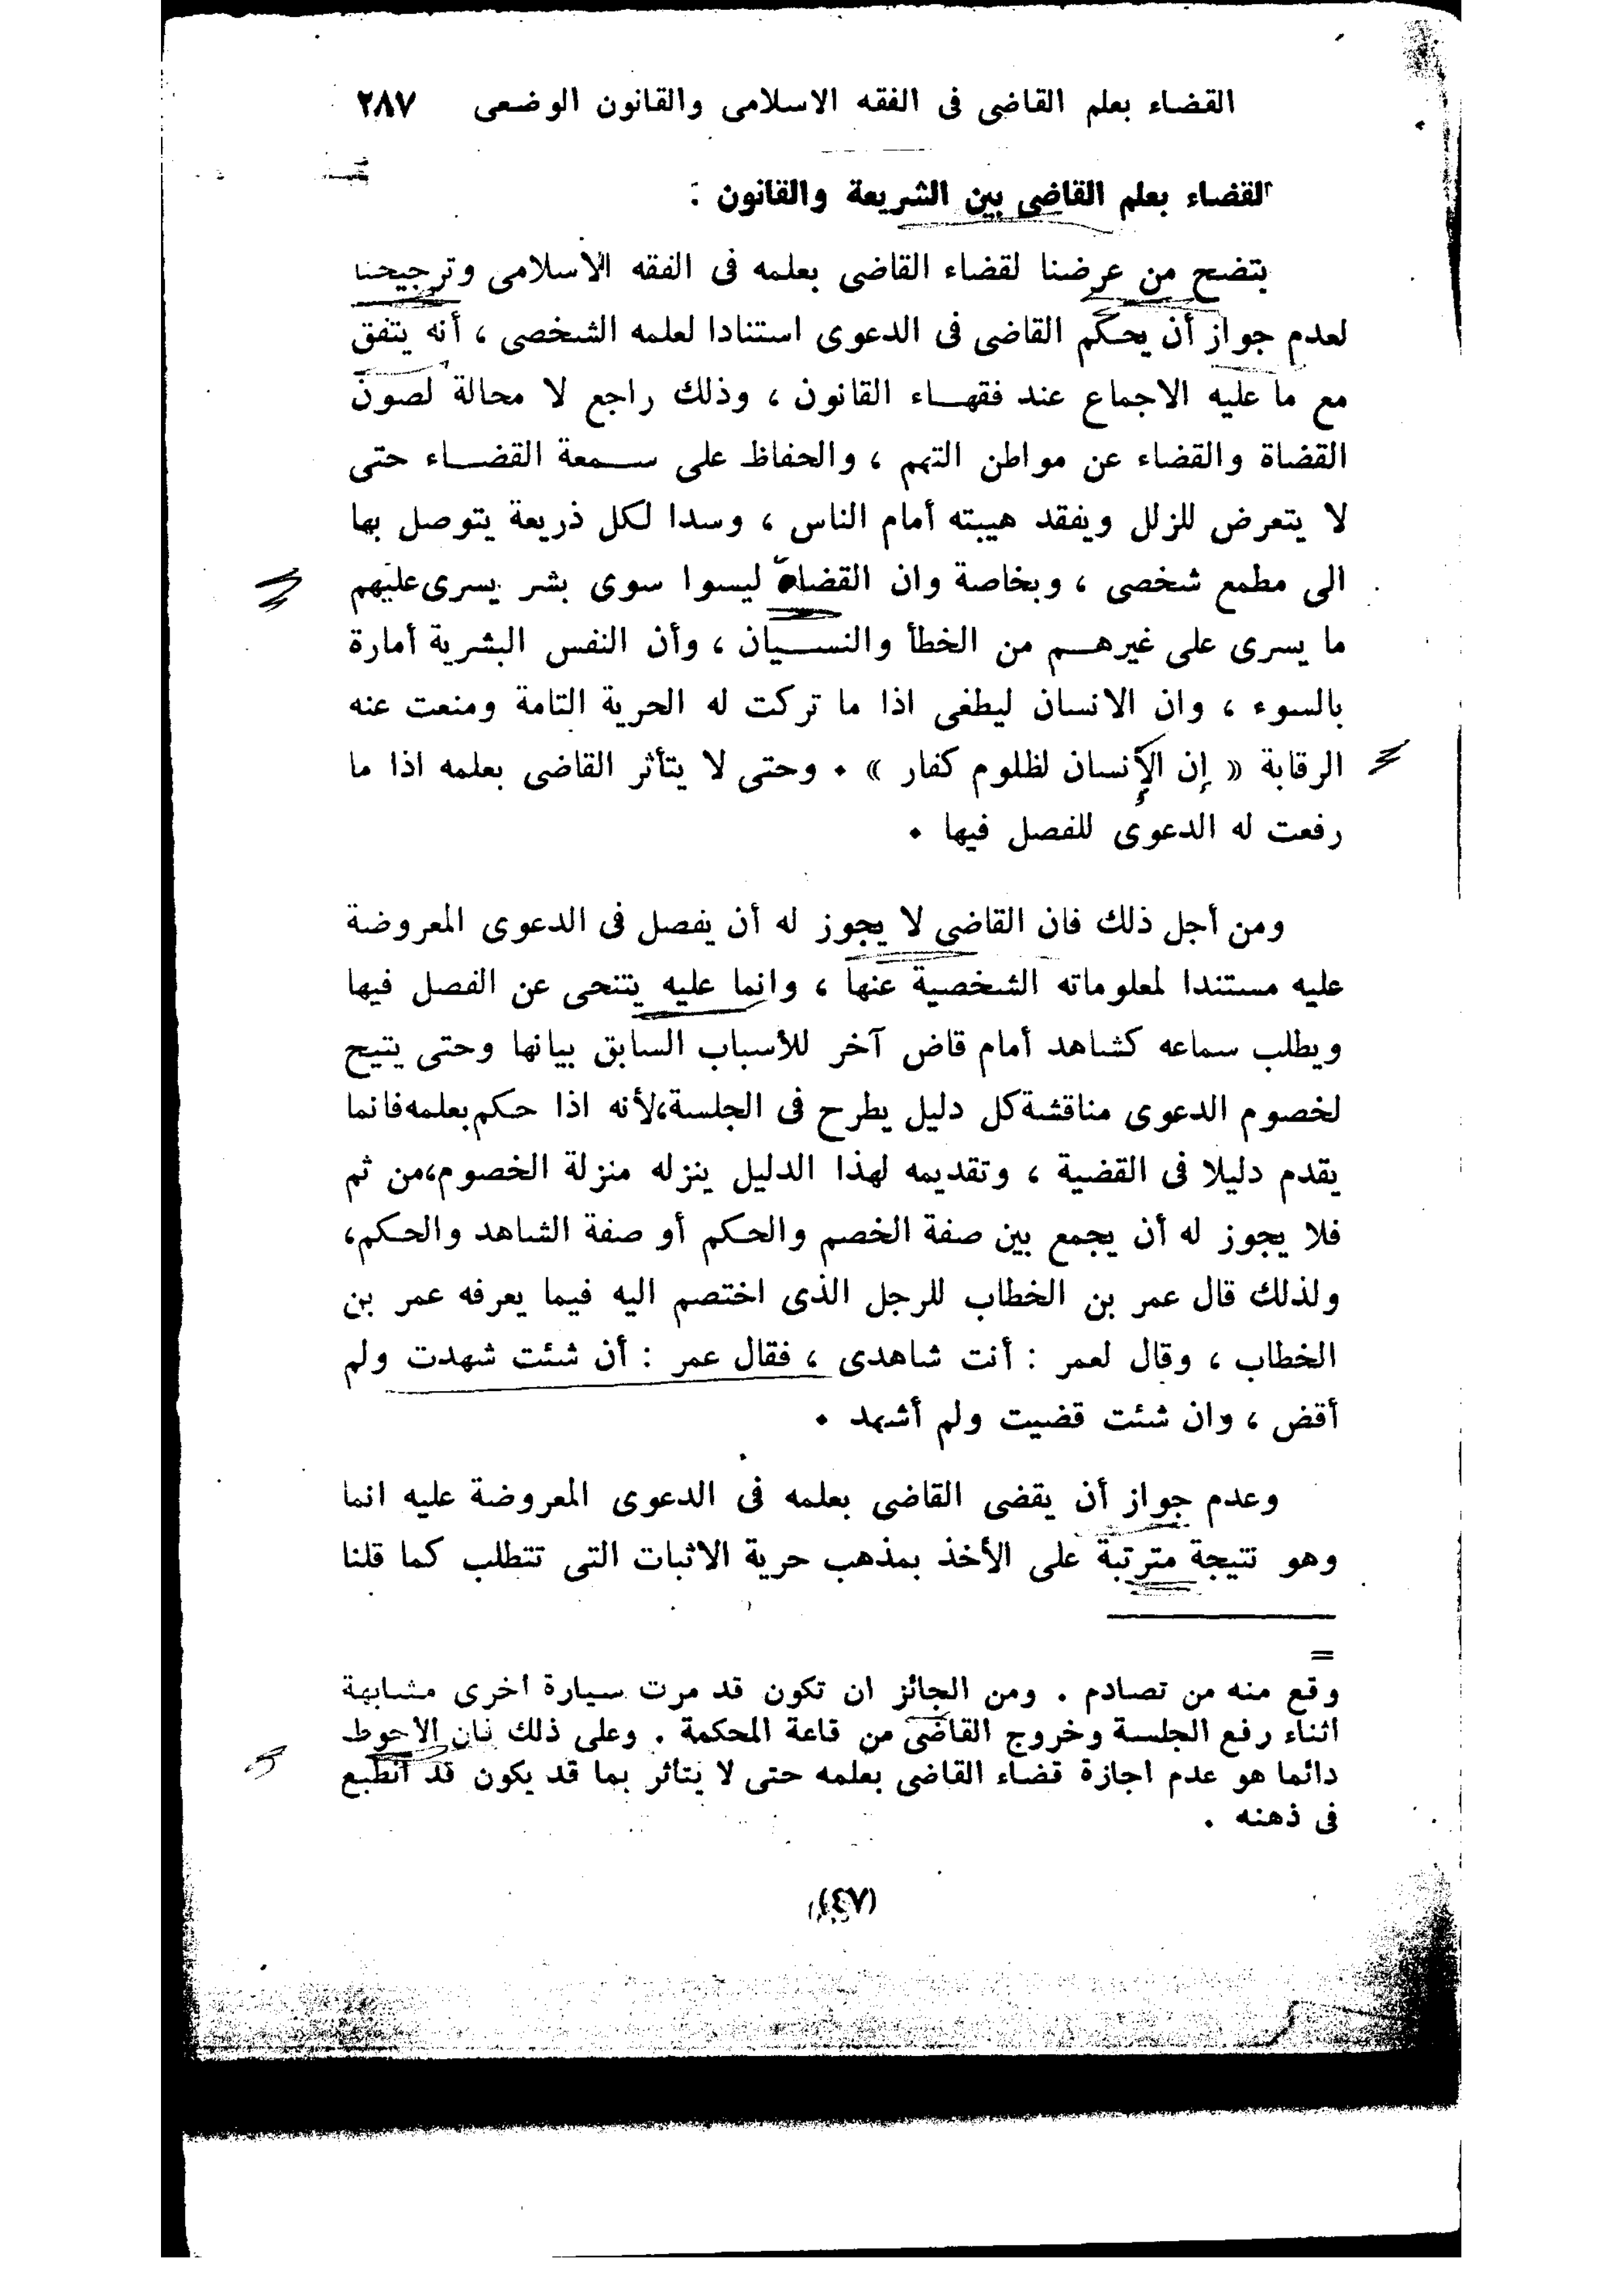 القضاء بعلم القاضى فى الفقه الاسلامى والقانون الوضعى ٢٨٧
القضاء بعلم القاضى بين الشريعة والقانون :
يتضح من عرضنا لقضاء القاضى بعلمه فى الفقه الاسلامى وترجيحنا
لعدم جواز أن يحكم القاضى فى الدعوى استنادا لعلمه الشخصى ، أنه يتفق
مع ما عليه الاجماع عند فقهاء القانون ، وذلك راجع لا محالة لصون
القضاة والقضاء عن مواطن التهم ، والحفاظ على سمعة القضاء حتى
لا يتعرض للزلل ويفقد هيبته أمام الناس ، وسدا لكل ذريعة يتوصل بها
الى مطمع شخصى ، وبخاصة وان القضاة ليسوا سوى بشر يسرى عليهم
ما يسرى على غيرهم من الخطأ والنسيان ، وأن النفس البشرية أمارة
بالسوء ، وان الانسان ليطغى اذا ما تركت له الحرية التامة ومنعت عنه
الرقابة « إن الإنسان لظلوم كفار » ٠ وحتى لا يتأثر القاضى بعلمه اذا ما
رفعت له الدعوى للفصل فيها ٠
ومن أجل ذلك فان القاضى لا يجوز له أن يفصل فى الدعوى المعروضة
عليه مستندا لمعلوماته الشخصية عنها ، وانما عليه يتنحى عن الفصل فيها
ويطلب سماعه كشاهد أمام قاض آخر للأسباب السابق بيانها وحتى يتيح
لخصوم الدعوى مناقشة كل دليل يطرح فى الجلسة،لأنه اذا حكم بعلمه فانما
يقدم دليلا فى القضية ، وتقديمه لهذا الدليل ينزله منزلة الخصوم،من ثم
فلا يجوز له أن يجمع بين صفة الخصم والحكم أو صفة الشاهد والحكم،
ولذلك قال عمر بن الخطاب للرجل الذى اختصم اليه فيما يعرفه عمر بن
الخطاب ، وقال لعمر : أنت شاهدى ، فقال عمر : أن شئت شهدت ولم
أقض ، وان شئت قضيت ولم أشهد ٠
وعدم جواز أن يقضى القاضى بعلمه فى الدعوى المعروضة عليه انما
وهو نتيجة مترتبة على الأخذ بمذهب حرية الاثبات التى تتطلب كما قلنا
=
وقع منه من تصادم . ومن الجائز ان تكون قد مرت سيارة اخرى مشابهة
اثناء رفع الجلسة وخروج القاضى من قاعة المحكمة . وعلى ذلك فان الاحوط
دائما هو عدم اجازة قضاء القاضى بعلمه حتى لا يتأثر بما قد يكون قد انطبع
فى ذهنه .
(٤٧)